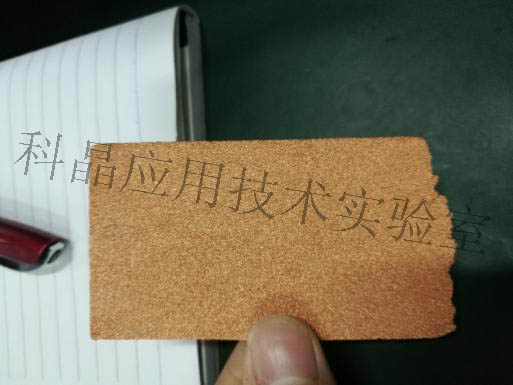 科晶应用技术实验室